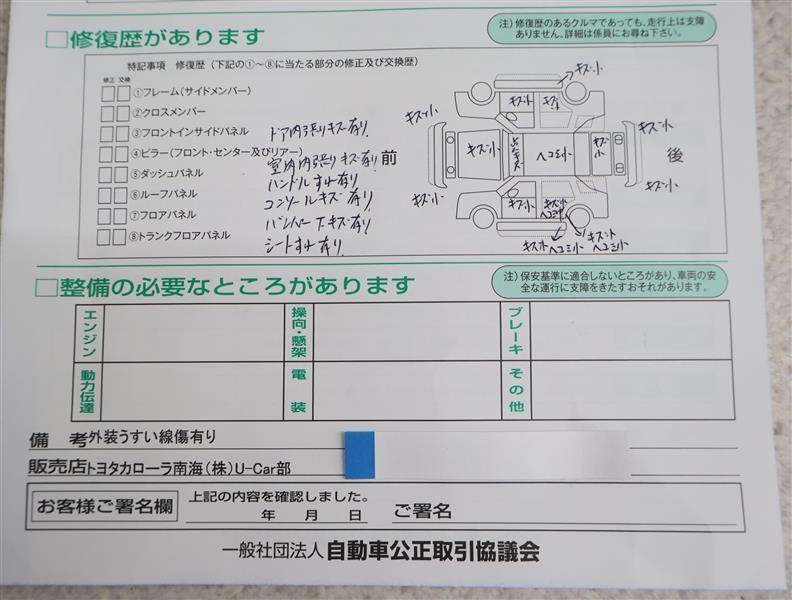 □修復歴があります
注）修復歴のあるクルマであっても、走行上は支障
ありません。詳細は係員にお尋ね下さい。
特記事項　修復歴（下記の①～⑧に当たる部分の修正及び交換歴）
修正 交換
①フレーム（サイドメンバー）
②クロスメンバー
③フロントインサイドパネル
④ピラー（フロント・センター及びリアー）
⑤ダッシュパネル
⑥ルーフパネル
⑦フロアパネル
⑧トランクフロアパネル
ドア内張りキズ有り
室内内張りキズ有り
ハンドルすれ有り
コンソールキズ有り
バンパー下キズ有り
シートすれ有り
前
後
キズ小
キズ小
キズ小
キズ小
キズ小
キズ小
ヘコミ小
キズ小
キズ小
キズ小
キズ小
キズ小
キズ小
ヘコミ小
キズ小
ヘコミ小
キズ小
ヘコミ小
□整備の必要なところがあります
注）保安基準に適合しないところがあり、車両の安
全な運行に支障をきたすおそれがあります。
エンジン
操向・懸架
ブレーキ
動力伝達
電装
その他
備　考 外装うすい線傷有り
販売店 トヨタカローラ南海（株）U-Car部
お客様ご署名欄
上記の内容を確認しました。
年　月　日　ご署名
一般社団法人 自動車公正取引協議会